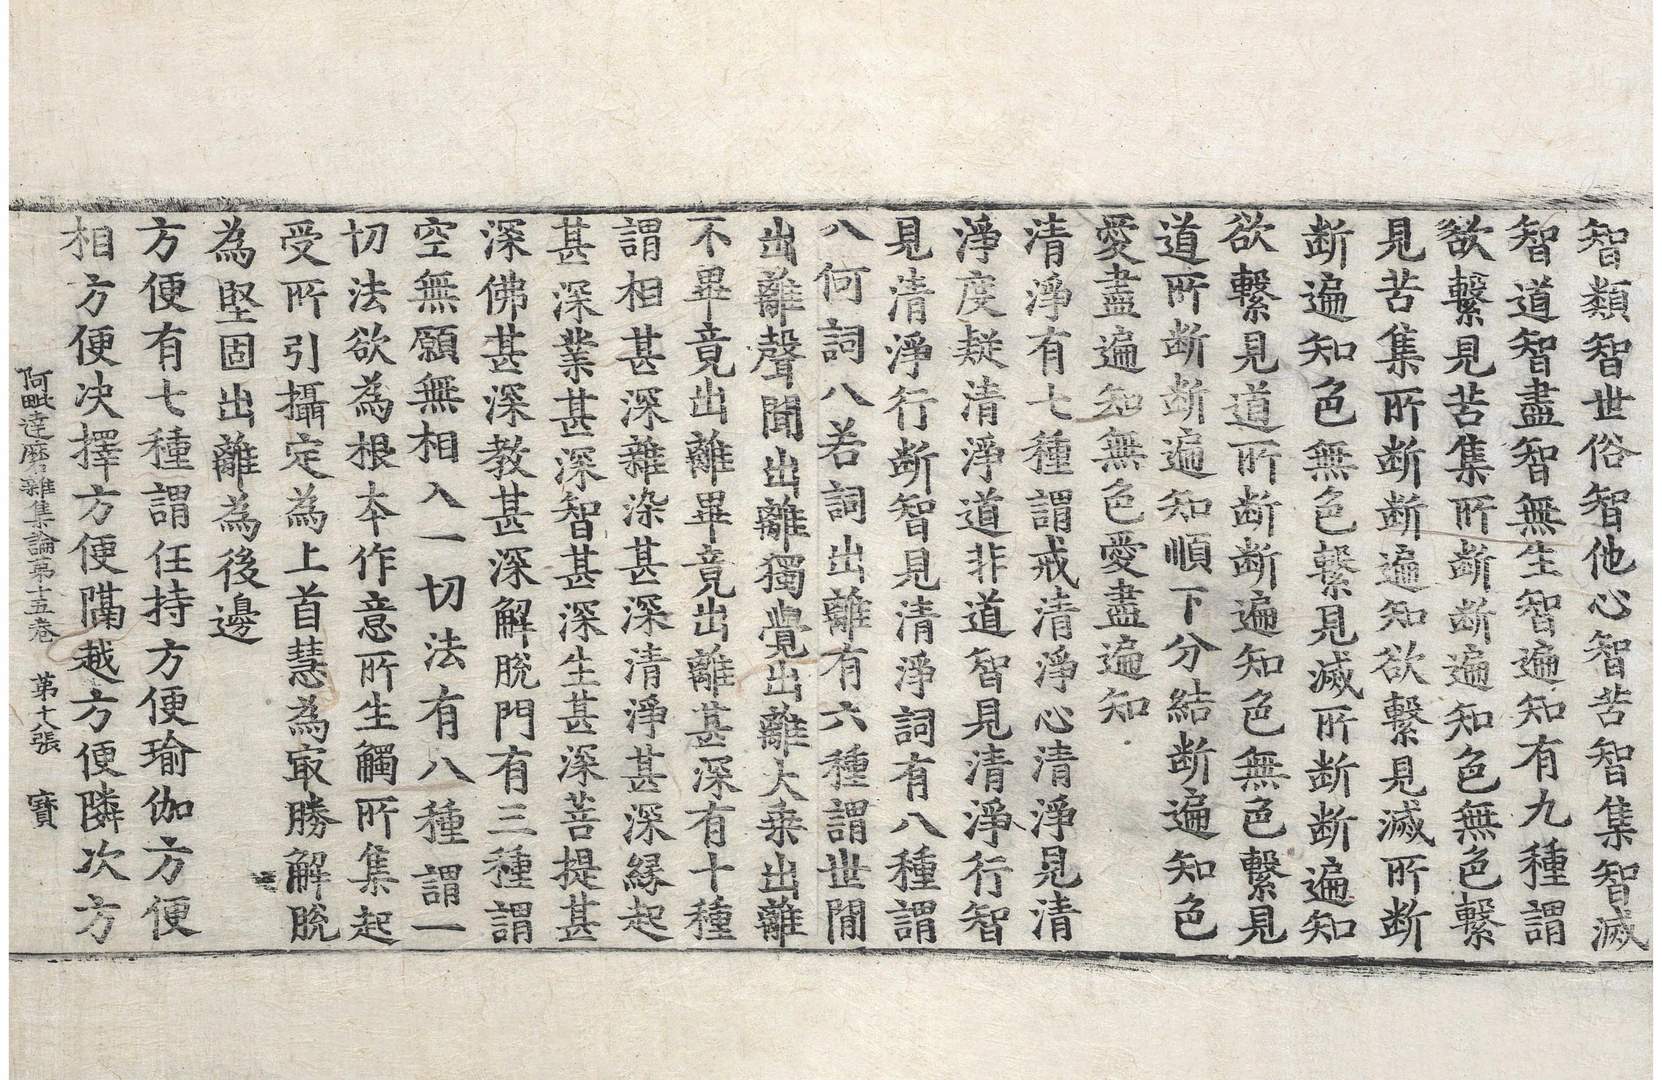 智類智世俗智他心智苦智集智滅
智道智盡智無生智遍知有九種謂
欲繫見苦集所断断遍知色無色繫
見苦集所断断遍知欲繫見滅所断
断遍知色無色繫見滅所断断遍知
欲繫見道所断断遍知色無色繫見
道所断断遍知順下分結断遍知色
愛盡遍知無色愛盡遍知
清淨有七種謂戒清淨心清淨見清
淨度疑清淨道非道智見清淨行智
見清淨行断智見清淨詞有八種謂
八何詞八若詞出離有六種謂世間
出離聲聞出離獨覺出離大乗出離
不畢竟出離畢竟出離甚深有十種
謂相甚深雜染甚深清淨甚深縁起
甚深業甚深智甚深生甚深菩提甚
深佛甚深教甚深解脫門有三種謂
空無願無相入一切法有八種謂一
切法欲為根夲作意所生觸所集起
受所引攝定為上首慧為㝡勝解脫
為堅固出離為後邊
方便有七種謂任持方便瑜伽方便
相方便决擇方便隔越方便隣次方
阿毗達磨雜集論苐十五卷 苐十八張 寳